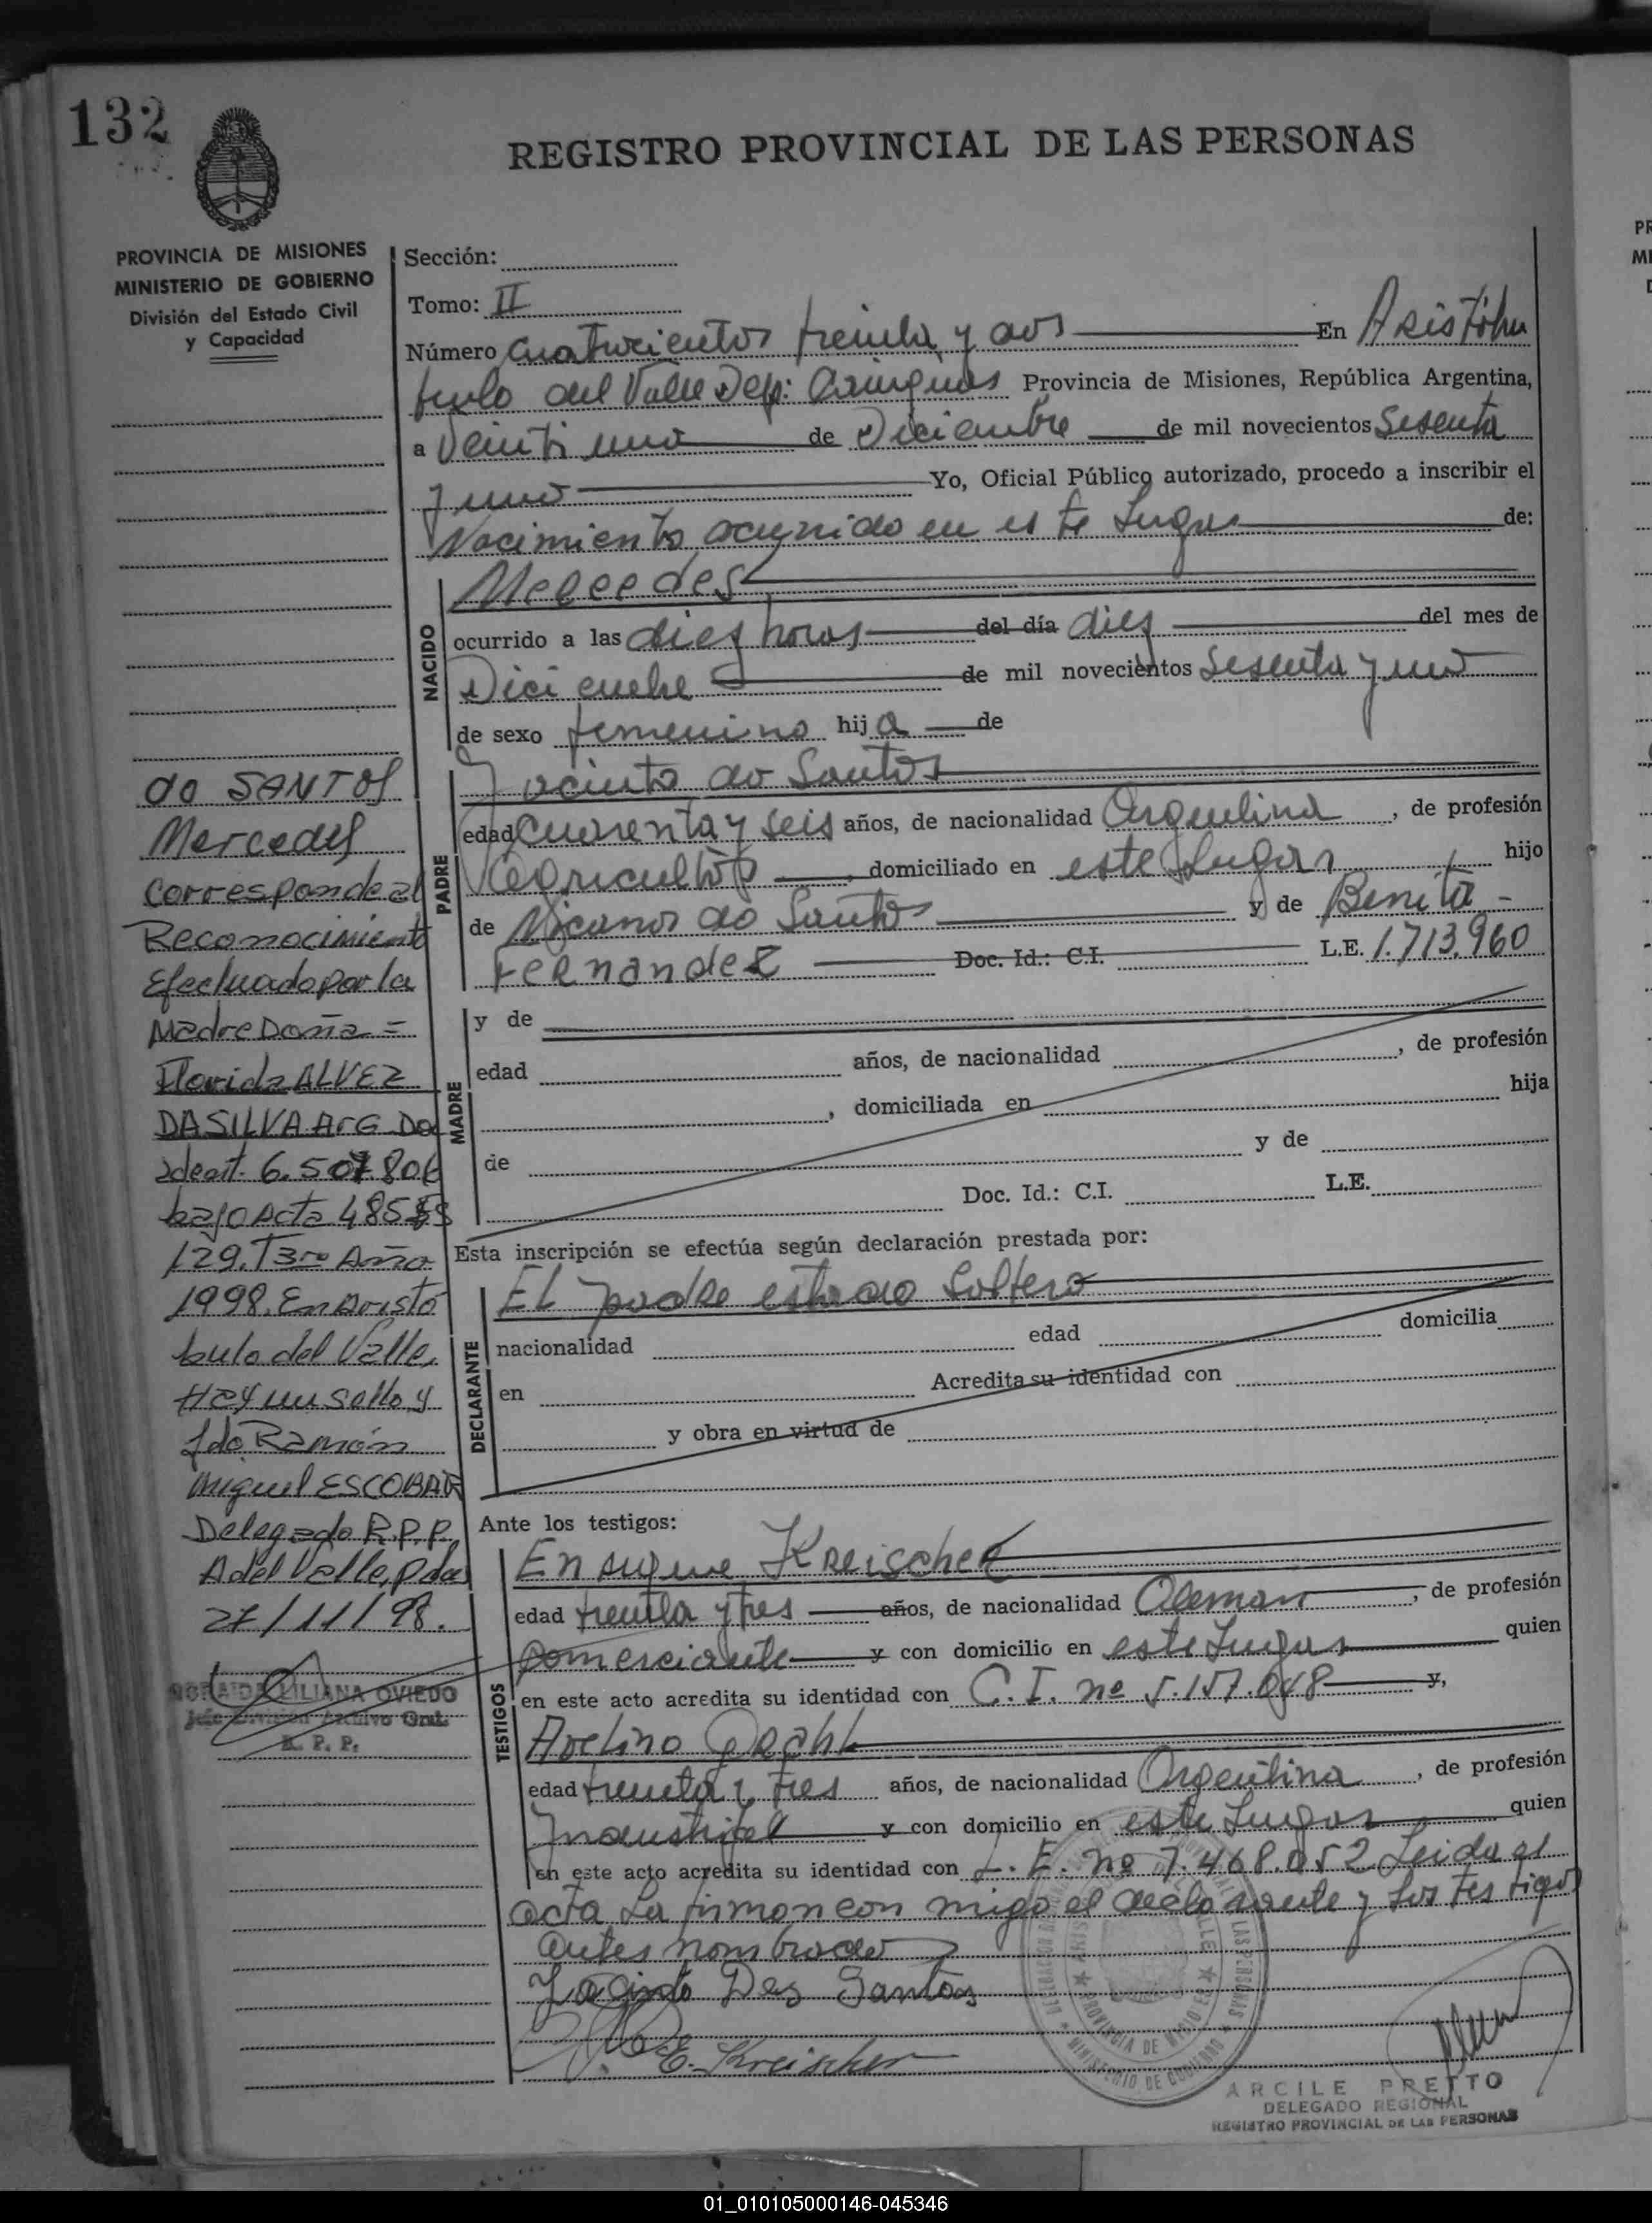 132
REGISTRO PROVINCIAL DE LAS PERSONAS
PROVINCIA DE MISIONES
MINISTERIO DE GOBIERNO
División del Estado Civil
y Capacidad
Sección:
Tomo: II
Número cuatrocientos treinta y dos En Aristóbu
bulo del Valle Dep: Cainguas Provincia de Misiones, República Argentina,
a Veinti uno de Diciembre de mil novecientos Sesenta
y uno Yo, Oficial Público autorizado, procedo a inscribir el
Nacimiento ocurrido en este Lugar de:
NACIDO
Mercedes
ocurrido a las diez horas del día diez del mes de
Diciembre de mil novecientos Sesenta y uno
de sexo femenino hija de
PADRE
Jacinto do Santos
edad Cuarenta y seis años, de nacionalidad Argentina, de profesión
Agricultor, domiciliado en este Lugar hijo
de Nicanor do Santos y de Benita -
Fernandez Doc. Id.: C.I. L.E. 1.713.960
MADRE
y de
edad años, de nacionalidad , de profesión
, domiciliada en hija
de y de
Doc. Id.: C.I. L.E.
Esta inscripción se efectúa según declaración prestada por:
DECLARANTE
El padre estado Soltero
nacionalidad edad domicilia
en Acredita su identidad con
y obra en virtud de
Ante los testigos:
TESTIGOS
Enrique Kreischer
edad treinta y tres años, de nacionalidad Aleman, de profesión
comerciante y con domicilio en este Lugar quien
en este acto acredita su identidad con C.I. nº 5.157.048 y,
Avelino
edad treinta y tres años, de nacionalidad Argentina, de profesión
Industrial y con domicilio en este Lugar quien
en este acto acredita su identidad con L.E. nº 7.468.052 Leida el
acta La firman con migo el declarante y los testigos
antes nombrado
Jacinto Dos Santos
E. Kreischer
ARCILE PRETTO
DELEGADO REGIONAL
REGISTRO PROVINCIAL DE LAS PERSONAS
do SANTOS
Mercedes
Corresponde al
Reconocimiento
Efectuado por la
Madre Doña =
Florida ALVEZ
DASILVA Arg Doc
ident. 6.507.806
bajo Acta 485 Fs
129. T 3ro Año
1998. En Aristó
bulo del Valle,
Hay un sello y
fdo Ramón
Miguel ESCOBAR
Delegado R.P.P.
A del Valle, pdas
27/11/98.
LILIANA OVIEDO
Jefe División Archivo Gral.
R. P. P.
01_010105000146-045346